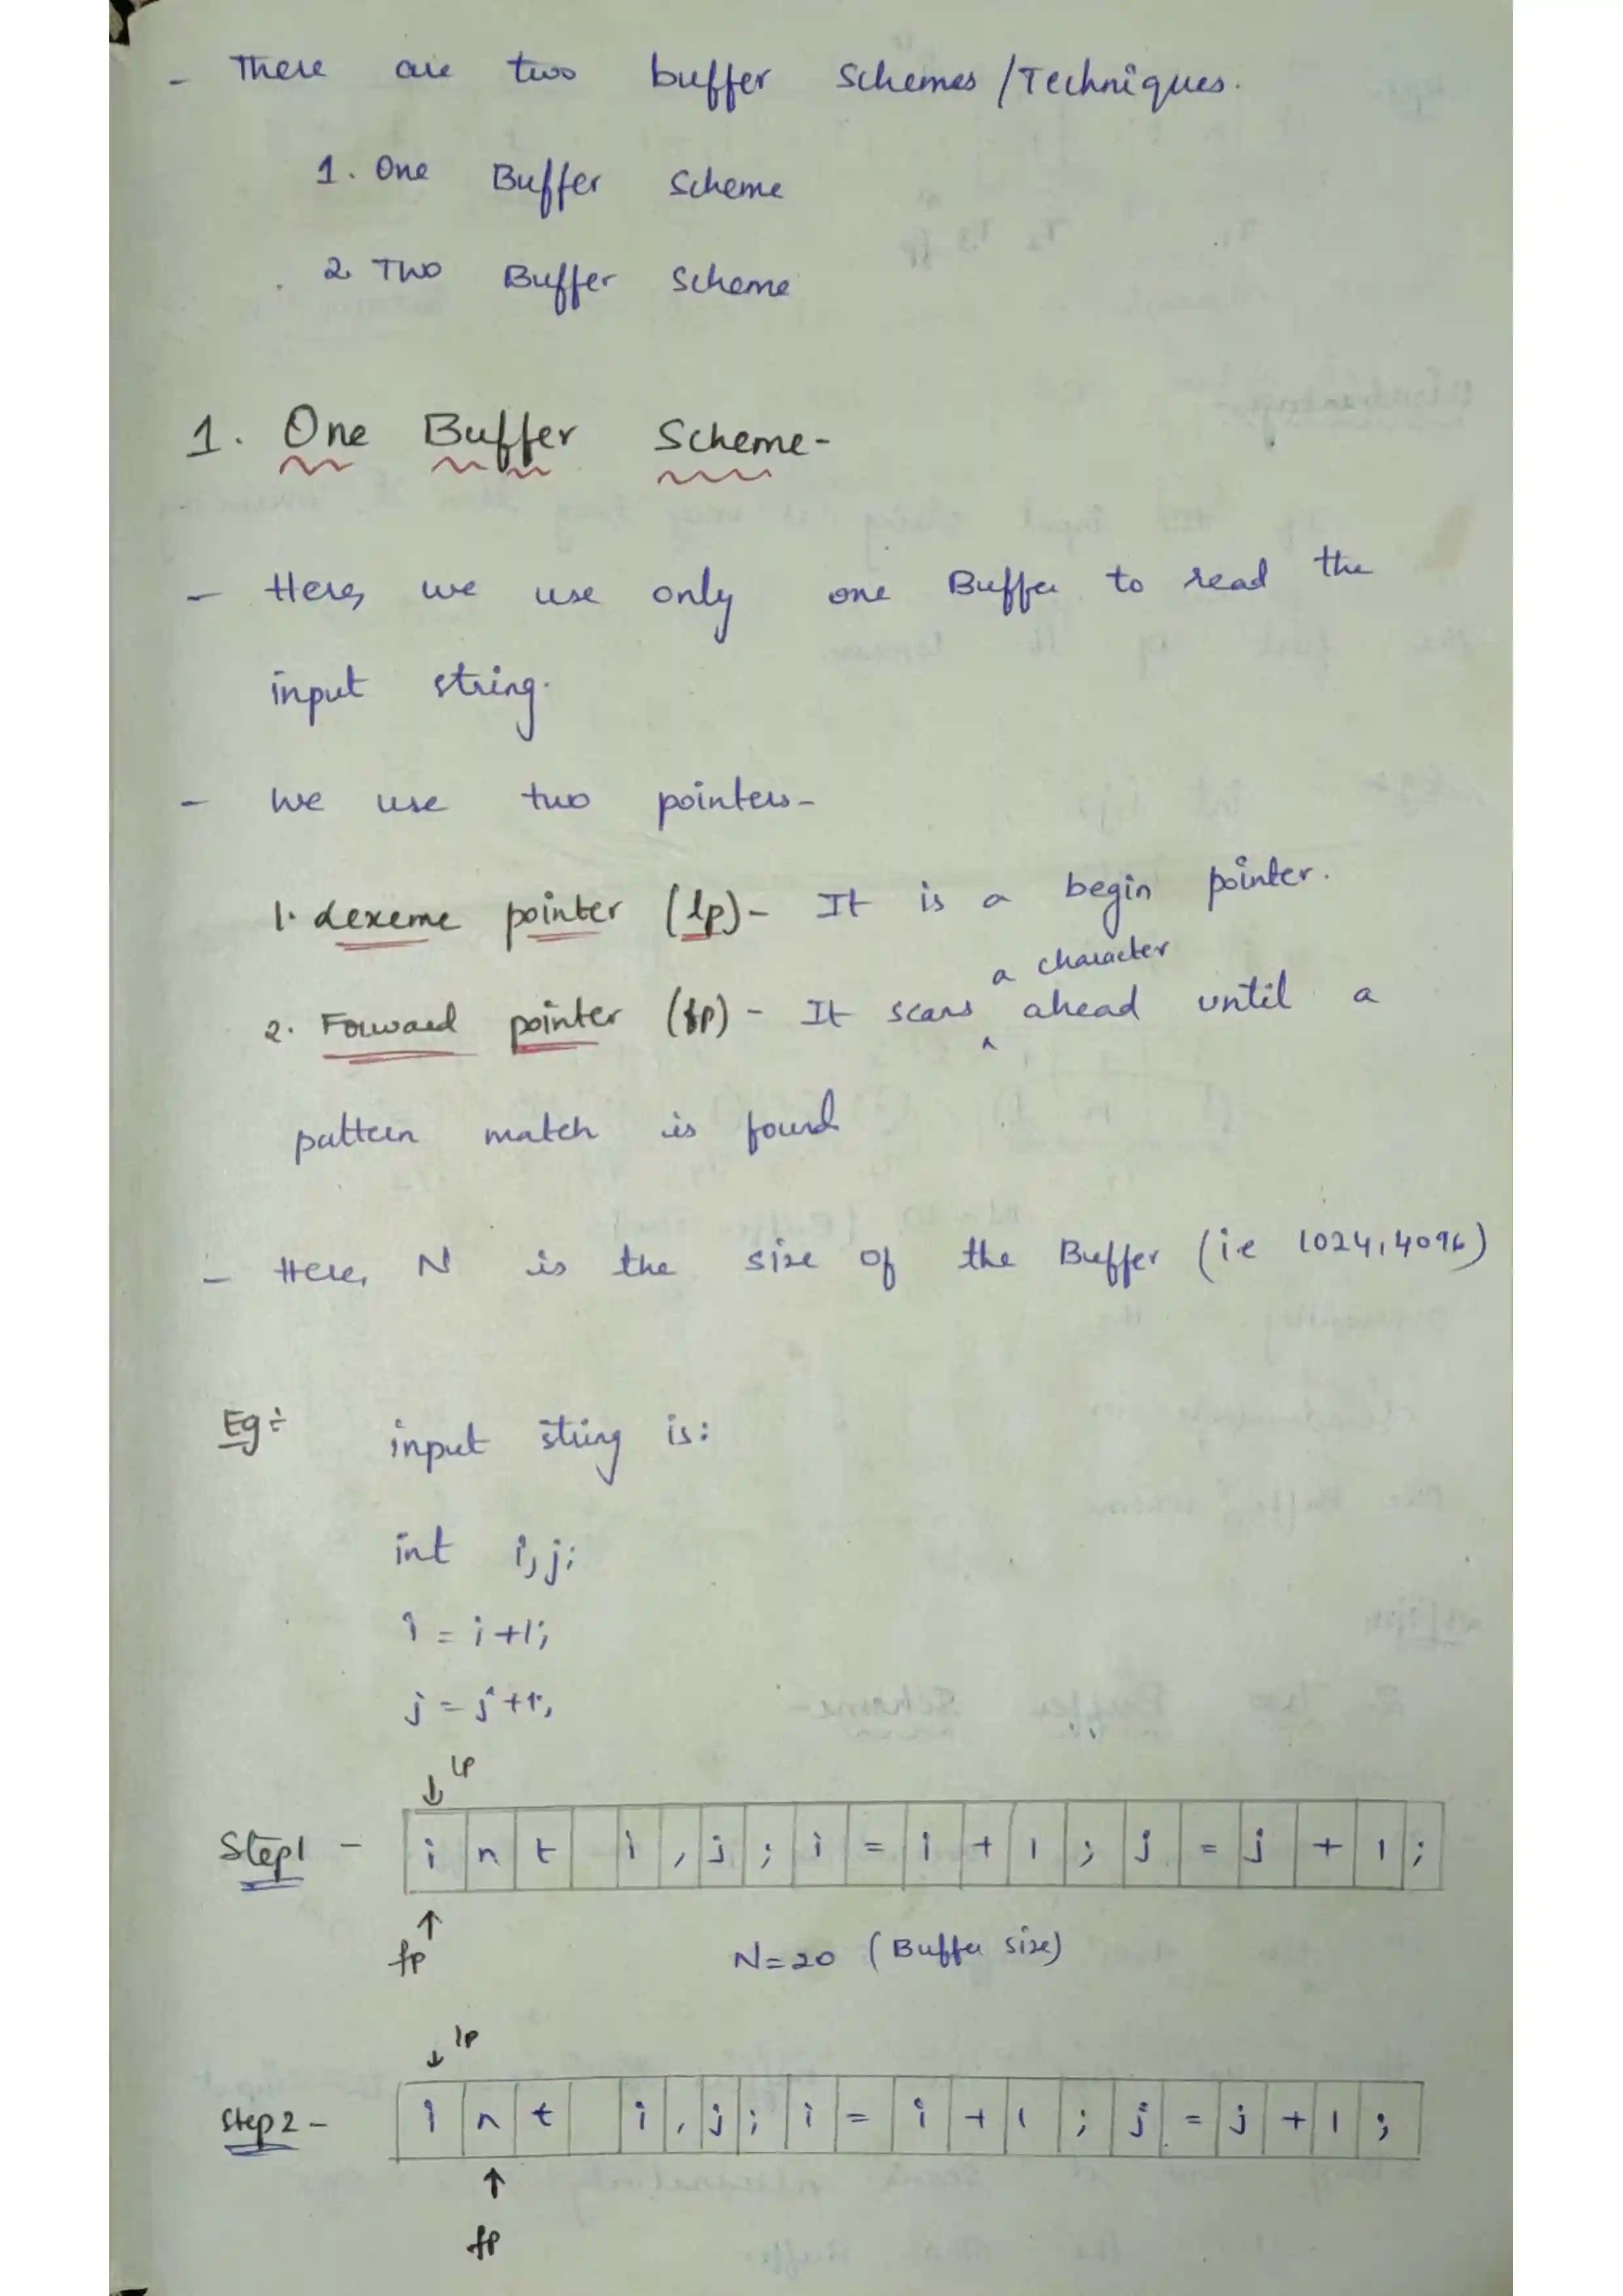 - There are two buffer schemes/Techniques.
1. One Buffer Scheme
2 Two Buffer Scheme
1. One Buffer Scheme-
- Here, we use only one Buffer to read the
input string.
- We use two pointers-
1. Lexeme pointer (lp)- It is a begin pointer.
a character
2. Forward pointer (fp) - It scans ^ ahead until a
pattern match is found
- Here, N is the size of the Buffer (ie 1024, 4096)
Eg:- input string is:
int i,j;
i = i+1;
j = j+1;
lp
Step1 - i n t i , j ; i = i + 1 ; j = j + 1 ;
fp N=20 (Buffer size)
lp
Step 2 - i n t i , j ; i = i + 1 ; j = j + 1 ;
fp